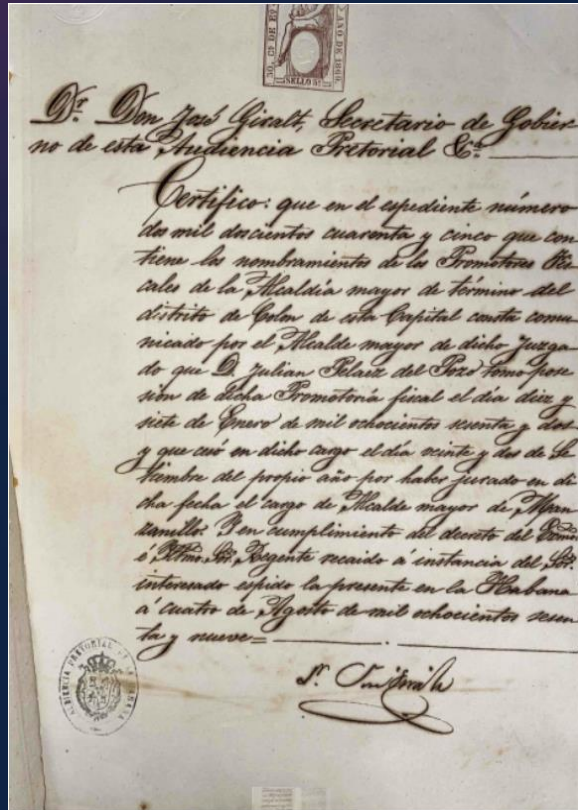 50. Cs DE Eº
AÑO DE 1869.
SELLO 3º
Dr. Don José Giralt, Secretario de Gobier-
no de esta Audiencia Pretorial &a.
Certifico: que en el espediente número
dos mil doscientos cuarenta y cinco que con
tiene los nombramientos de los Promotores Fis-
cales de la Alcaldía mayor de termino del
distrito de Colon de esta Capital consta comu
nicado por el Alcalde mayor de dicho Juzga
do que D. Julian Pelaez del Pozo tomo pose
sion de dicha Promotoría fiscal el día diez y
siete de Enero de mil ochocientos sesenta y dos
y que cesó en dicho cargo el día veinte y dos de Se
tiembre del propio año por haber jurado en di
cha fecha el cargo de Alcalde mayor de Man
zanillo. Y en cumplimiento del decreto del Escmo
é Iltmo. Sor. Regente recaido á instancia del Sor.
interesado espido la presente en la Habana
a cuatro de Agosto de mil ochocientos sesen
ta y nueve=
Dr. José Giralt
AUDIENCIA PRETORIAL DE LA HABANA